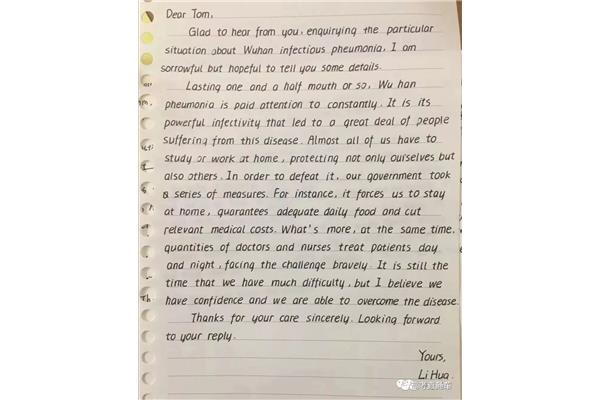 Dear Tom,
Glad to hear from you, enquirying the particular
situation about Wuhan infectious pneumonia, I am
sorrowful but hopeful to tell you some details.
Lasting one and a half mouth or so, Wu han
pneumonia is paid attention to constantly. It is its
powerful infectivity that led to a great deal of people
suffering from this disease. Almost all of us have to
study or work at home, protecting not only ourselves but
also others. In order to defeat it, our government took
a series of measures. For instance, it forces us to stay
at home, guarantees adequate daily food and cut
relevant medical costs. What's more, at the same time,
quantities of doctors and nurses treat patients day
and night, facing the challenge bravely. It is still the
time that we have much difficulty, but I believe we
have confidence and we are able to overcome the disease.
Thanks for your care sincerely. Looking forward
to your reply.
Yours,
Li Hua.